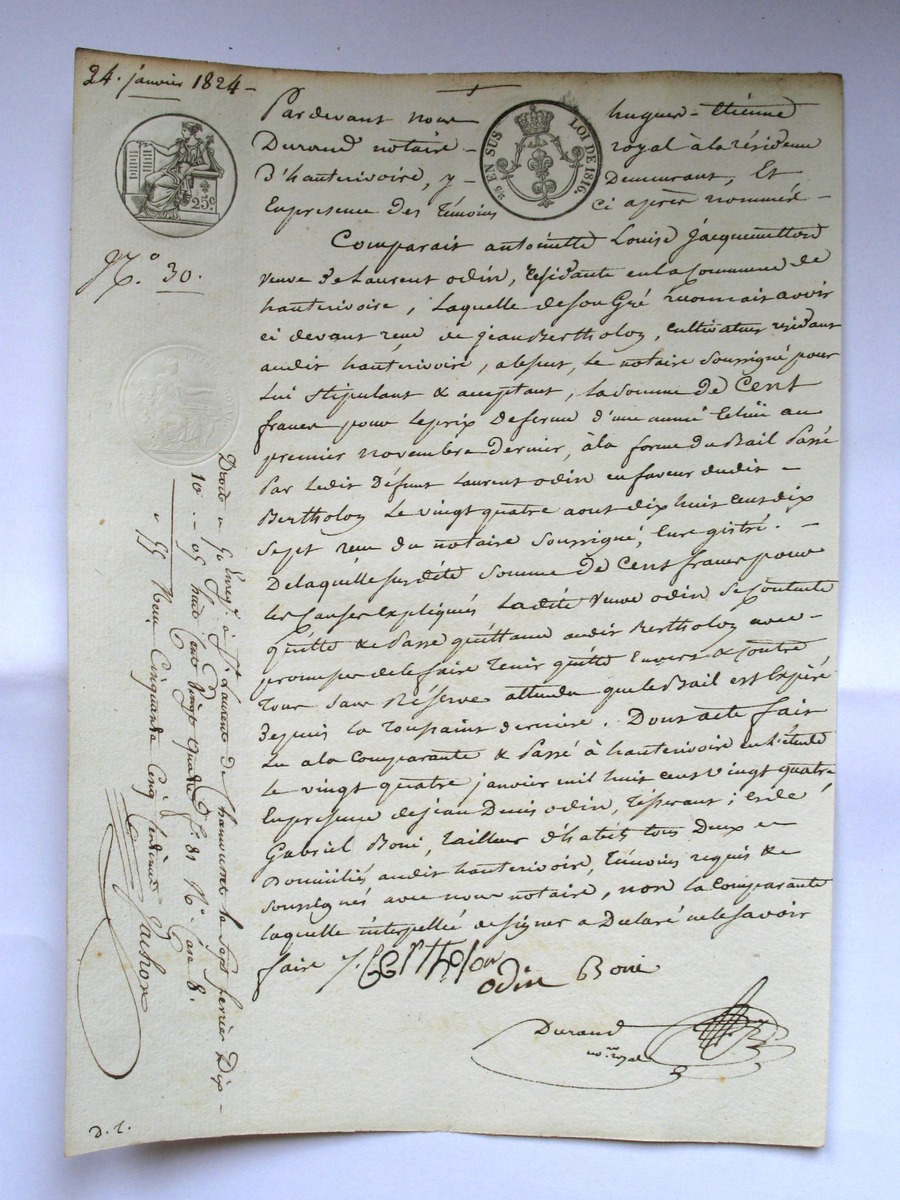 24. janvier 1824 -
EN SUS LOI DE 1816.
25c
N.o 30.
Par devant nous hugues - étienne
Durand notaire - royal à la résidence
d'hauterivoire, y - Demeurant, Et
En presence des témoins ci après nommés -
Comparait antoinette Louise Jacquemetton
veuve de Laurent odin, résidante en la Commune de
hauterivoire, Laquelle de son Gré reconnait avoir
ci devant reçu de jean Bertholon, cultivateur résidant
audit hauterivoire, absent, le notaire soussigné pour
Lui stipulant & acceptant, la somme de Cent
francs pour le prix de ferme d'une année Echue au
premier novembre dernier, à la forme du Bail Passé
Par ledit Défunt Laurent odin en faveur dudit -
Bertholon Le vingt quatre aout dix huit cent dix
sept reçu du notaire soussigné, Enregistré. -
De laquelle susdite somme de Cent francs pour
les Causes Expliqués Ladite veuve odin se contente
quitte & Passe quittance audit Bertholon avec -
promesse de le faire tenir quitte Envers & Contre
tous sans Réserve attendu que le Bail est Expiré
depuis la toussaint derniere. Dont acte fait
Lu a la Comparante & Passé à hauterivoire en l'étude
le vingt quatre janvier mil huit cent vingt quatre
En presence de jean Denis odin, tisserant, & de
Gabriel Boni, tailleur d'habits tous Deux
Domiciliés audit hauterivoire, témoins requis &
soussignés avec nous notaire, non la Comparante
laquelle interpellée de signer a Déclaré ne le savoir
faire ./. Bertholon
odin Boni
Durand
no.re royal
Enreg.é à St Laurent de Chamousset le sept fevrier Dix -
huit Cent vingt quatre f.o 81 R.o Case 8.
Reçu Cinquante Cinq Centimes Pachon
Droits " 50
10.e - 05
" 55
D. r.